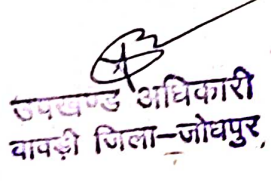 उपखण्ड अधिकारी
वापड़ी जिला-जोधपुर